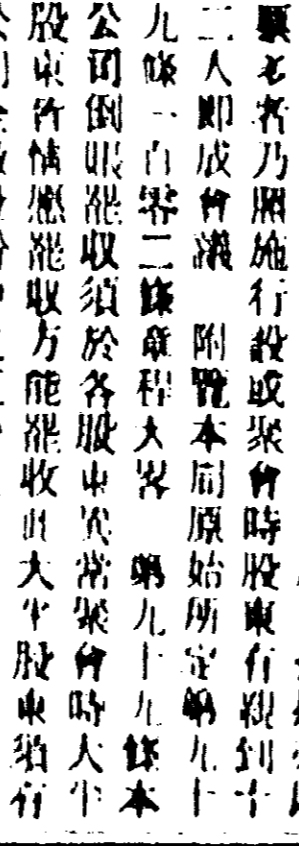 願允者乃照施行設或聚會時股東有親到十
二人即成會議 附覽本局原始所定第九十
九條一百零二條章程大畧 第九十九條本
公司倒眼罷收須於各股東異常聚會時大半
股東情愿罷收方能罷收此大半股東須行